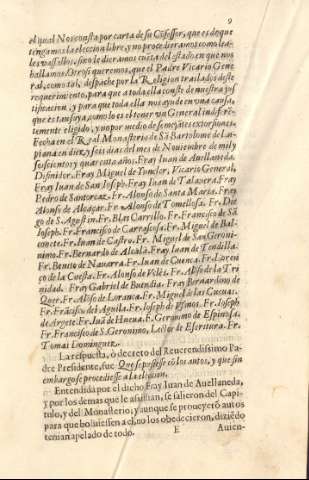 9
el qual Nos consta por carta de su Cõfessor, que es de que
tengamos la eleccion libre, y no procedieramos como lea-
les vassallos, si no le dieramos cuēta del estado en que nos
hallamos. Otrosi queremos, que el Padre Vicario Gene
ral, como tal, despache por la Religion traslados deste
requerimiento, para que a toda ella conste de nuestra jus
tificacion, y para que toda ella nos ayude en vna causa,
que es tan suya, como lo es tener vn General indifere-
temente elegido, y no por medio de semejātes extorsiones.
Fecha en el Real Monasterio de Sā Bartolome de Lu-
piana en diez y seis dias del mes de Nouiembre de mil y
seiscientos y quarenta años. Fray Iuan de Auellaneda,
Difinidor. Fray Miguel de Vicario General,
Fray Iuan de San Ioseph. Fray Iuan de Talauera. Fray
Pedro de Santorcaz. Fr. Alonso de Santa Maria. Fray
Alonso de Alcoçar. Fr. Alonso de Tomellosa. Fr. Die
go de S. Agustin. Fr. Blas Carrillo. Fr. Francisco de Sā
Ioseph. Fr. Francisco de Carrascosa. Fr. Miguel de Bal
conete. Fr. Iuan de Castro. Fr. Miguel de San Geroni-
nimo. Fr. Bernardo de Alcalà. Fray Iuan de Tendilla.
Fr. Benito de Nauarra. Fr. Iuan de Cuenca. Fr. Loren
ço de la Cuesta. Fr. Alonso de Velés. Fr. Alõso de la Tri
nidad. Fray Gabriel de Buendia. Fray Bernardino de
Quer. Fr. Alõso de Loranca. Fr. Miguel de las Cueuas.
Fr. Frācisco del Aguila. Fr. Ioseph de Fr. Ioseph
de Argete. Fr. Iuā de Hueua. F. Geronimo de Espinosa.
Fr. Francisco de S. Geronimo, Lector de Escritura. Fr.
Tomas Dominguez.
La respuesta, ò decreto del Reuerendissimo Pa-
dre Presidente, fue Que se pusiesse cõ los autos, y que sin
embargo se procediesse a la eleccion.
Entendida por el dicho Fray Iuan de Auellaneda,
y por los demas que le assistian, se salieron del Capi-
tulo, y del Monasterio; y aunque se proueyerõ autos
para que boluiessen a el, no los obedecieron, diziēdo
tenian apelado de todo. E Auien-